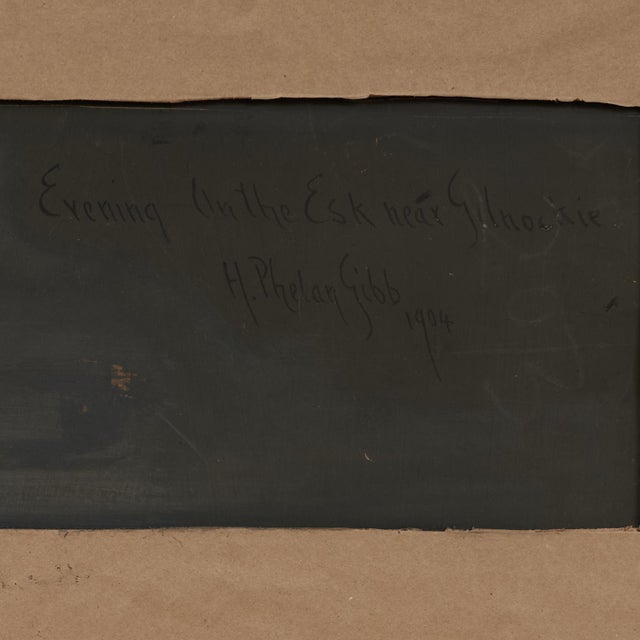 Evening On the Esk near Gilnockie
H. Phelan Gibb
1904